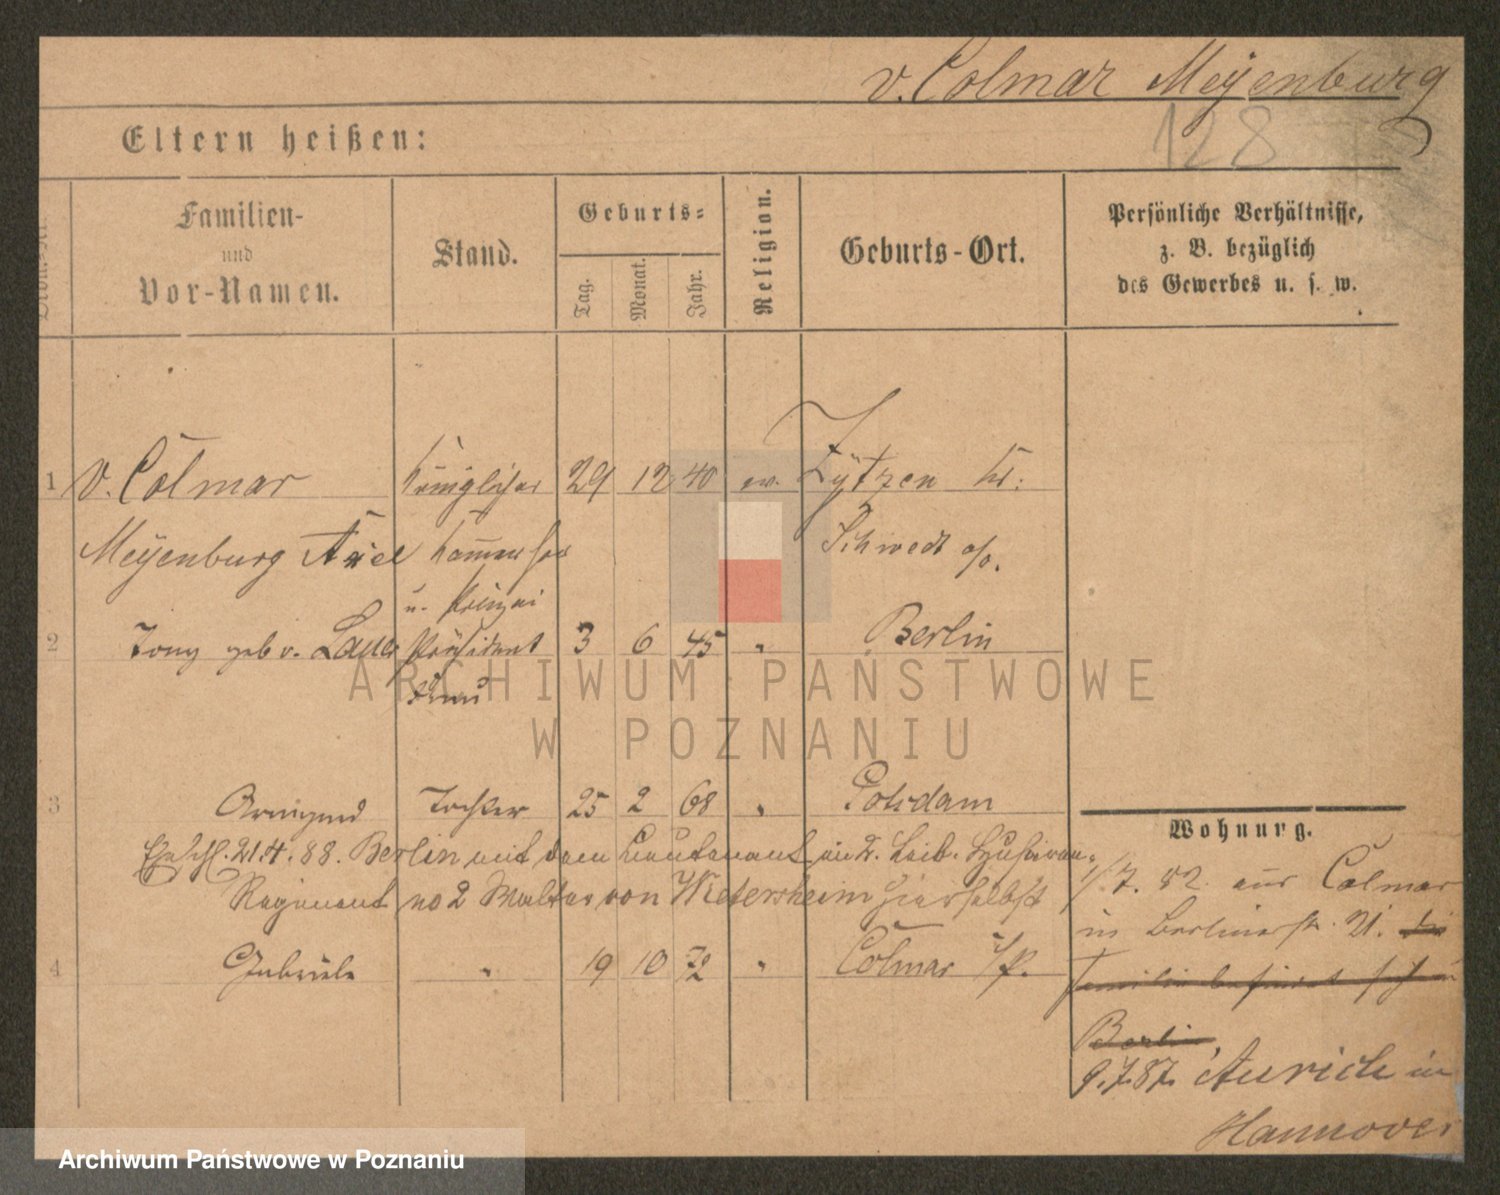 v. Colmar Meyenburg
128
Eltern heißen:
Familien-
und
Vor-Namen.
Stand.
Geburts-
Tag.
Monat.
Jahr.
Religion.
Geburts-Ort.
Persönliche Verhältnisse,
z. B. bezüglich
des Gewerbes u. s. w.
1 v. Colmar Königlicher 29 12 40 ev. Zützen Kr.
Meyenburg Axel Kammerherr Schwedt a/o.
u. Polizei
2 Tony geb v. Lauer Präsident 3 6 45 " Berlin
Frau
3 Armgard Tochter 25 2 68 " Potsdam
Ehschl. 21.4.88. Berlin mit dem Lieutenant im 2. Leib. Husaren-
Regiment no 2 Walter von Wietersheim hierselbst
4 Gabriele " 19 10 72 " Colmar i/P.
Wohnung.
1/7. 82. aus Colmar
in Berlinerstr. 21. die
Familie befindet sich in
Berlin.
9.7.87. Aurich in
Hannover
ARCHIWUM PAŃSTWOWE
W POZNANIU
Archiwum Państwowe w Poznaniu